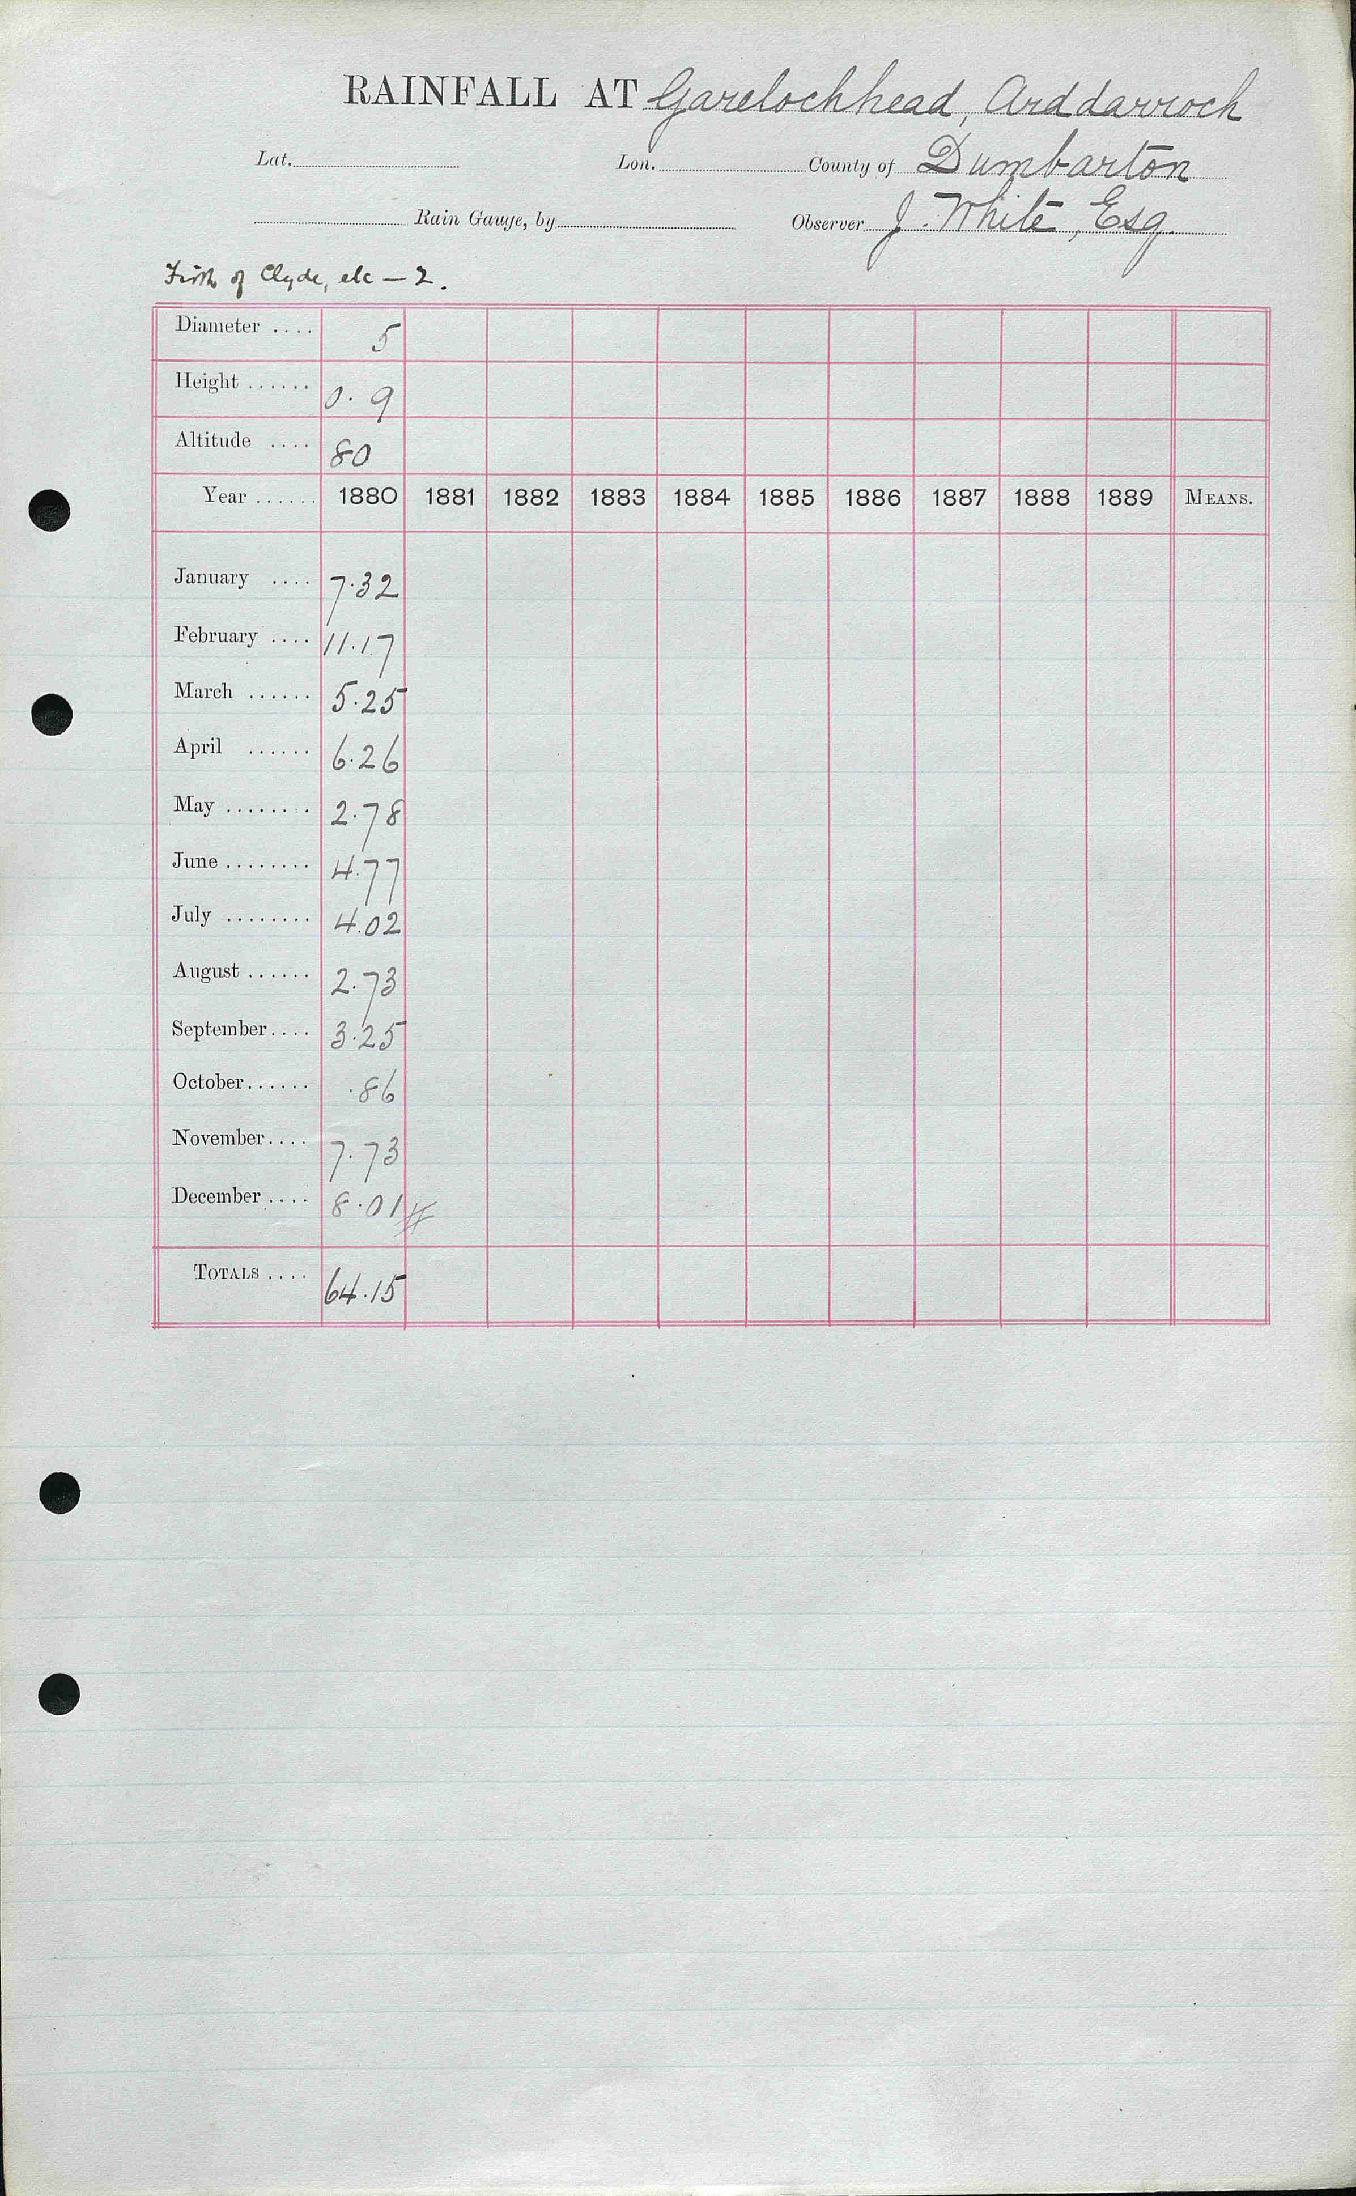 RAINFALL AT Garelochhead, Arddarroch
Lat. Lon. County of Dumbarton
Rain Gauge, by Observer J. White, Esq.
Firth of Clyde, etc — 2.
Diameter .... 5
Height ...... 0.9
Altitude .... 80
Year ...... 1880 1881 1882 1883 1884 1885 1886 1887 1888 1889 MEANS.
January .... 7.32
February .... 11.17
March ...... 5.25
April ...... 6.26
May ........ 2.78
June ........ 4.77
July ........ 4.02
August ...... 2.73
September .... 3.25
October ...... .86
November .... 7.73
December .... 8.01 #
TOTALS .... 64.15